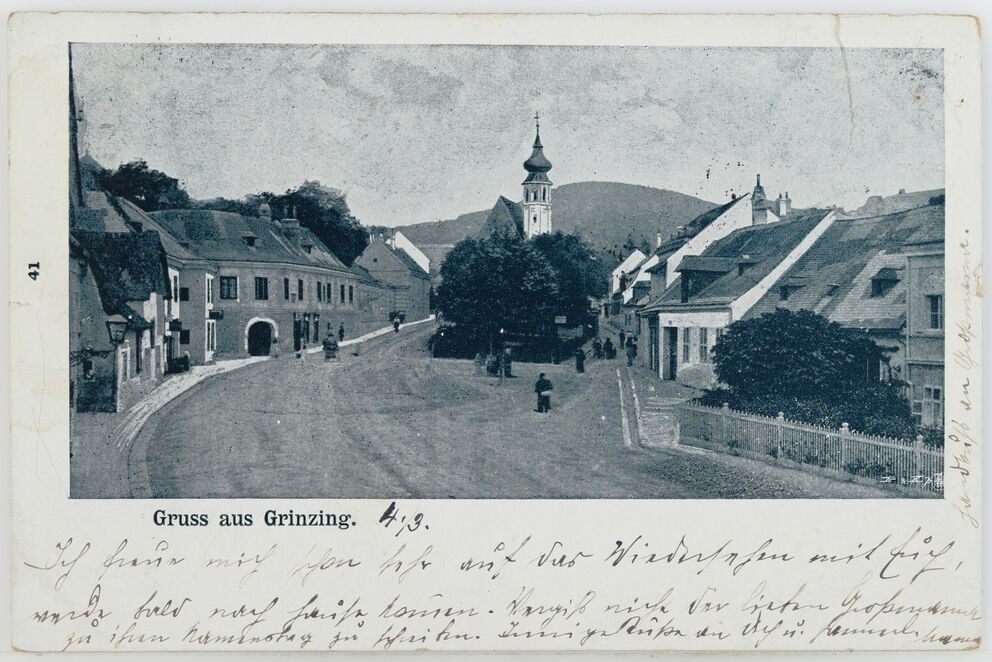 41
Gruss aus Grinzing. 4/3.
Ich freue mich schon sehr auf das Wiedersehen mit Euch,
werde bald nach Hause kommen. Vergiß nicht der lieben Großmama
zu ihrem Namenstag zu schreiben. Innige Küße an Dich u.
Handkuß an Großmama.